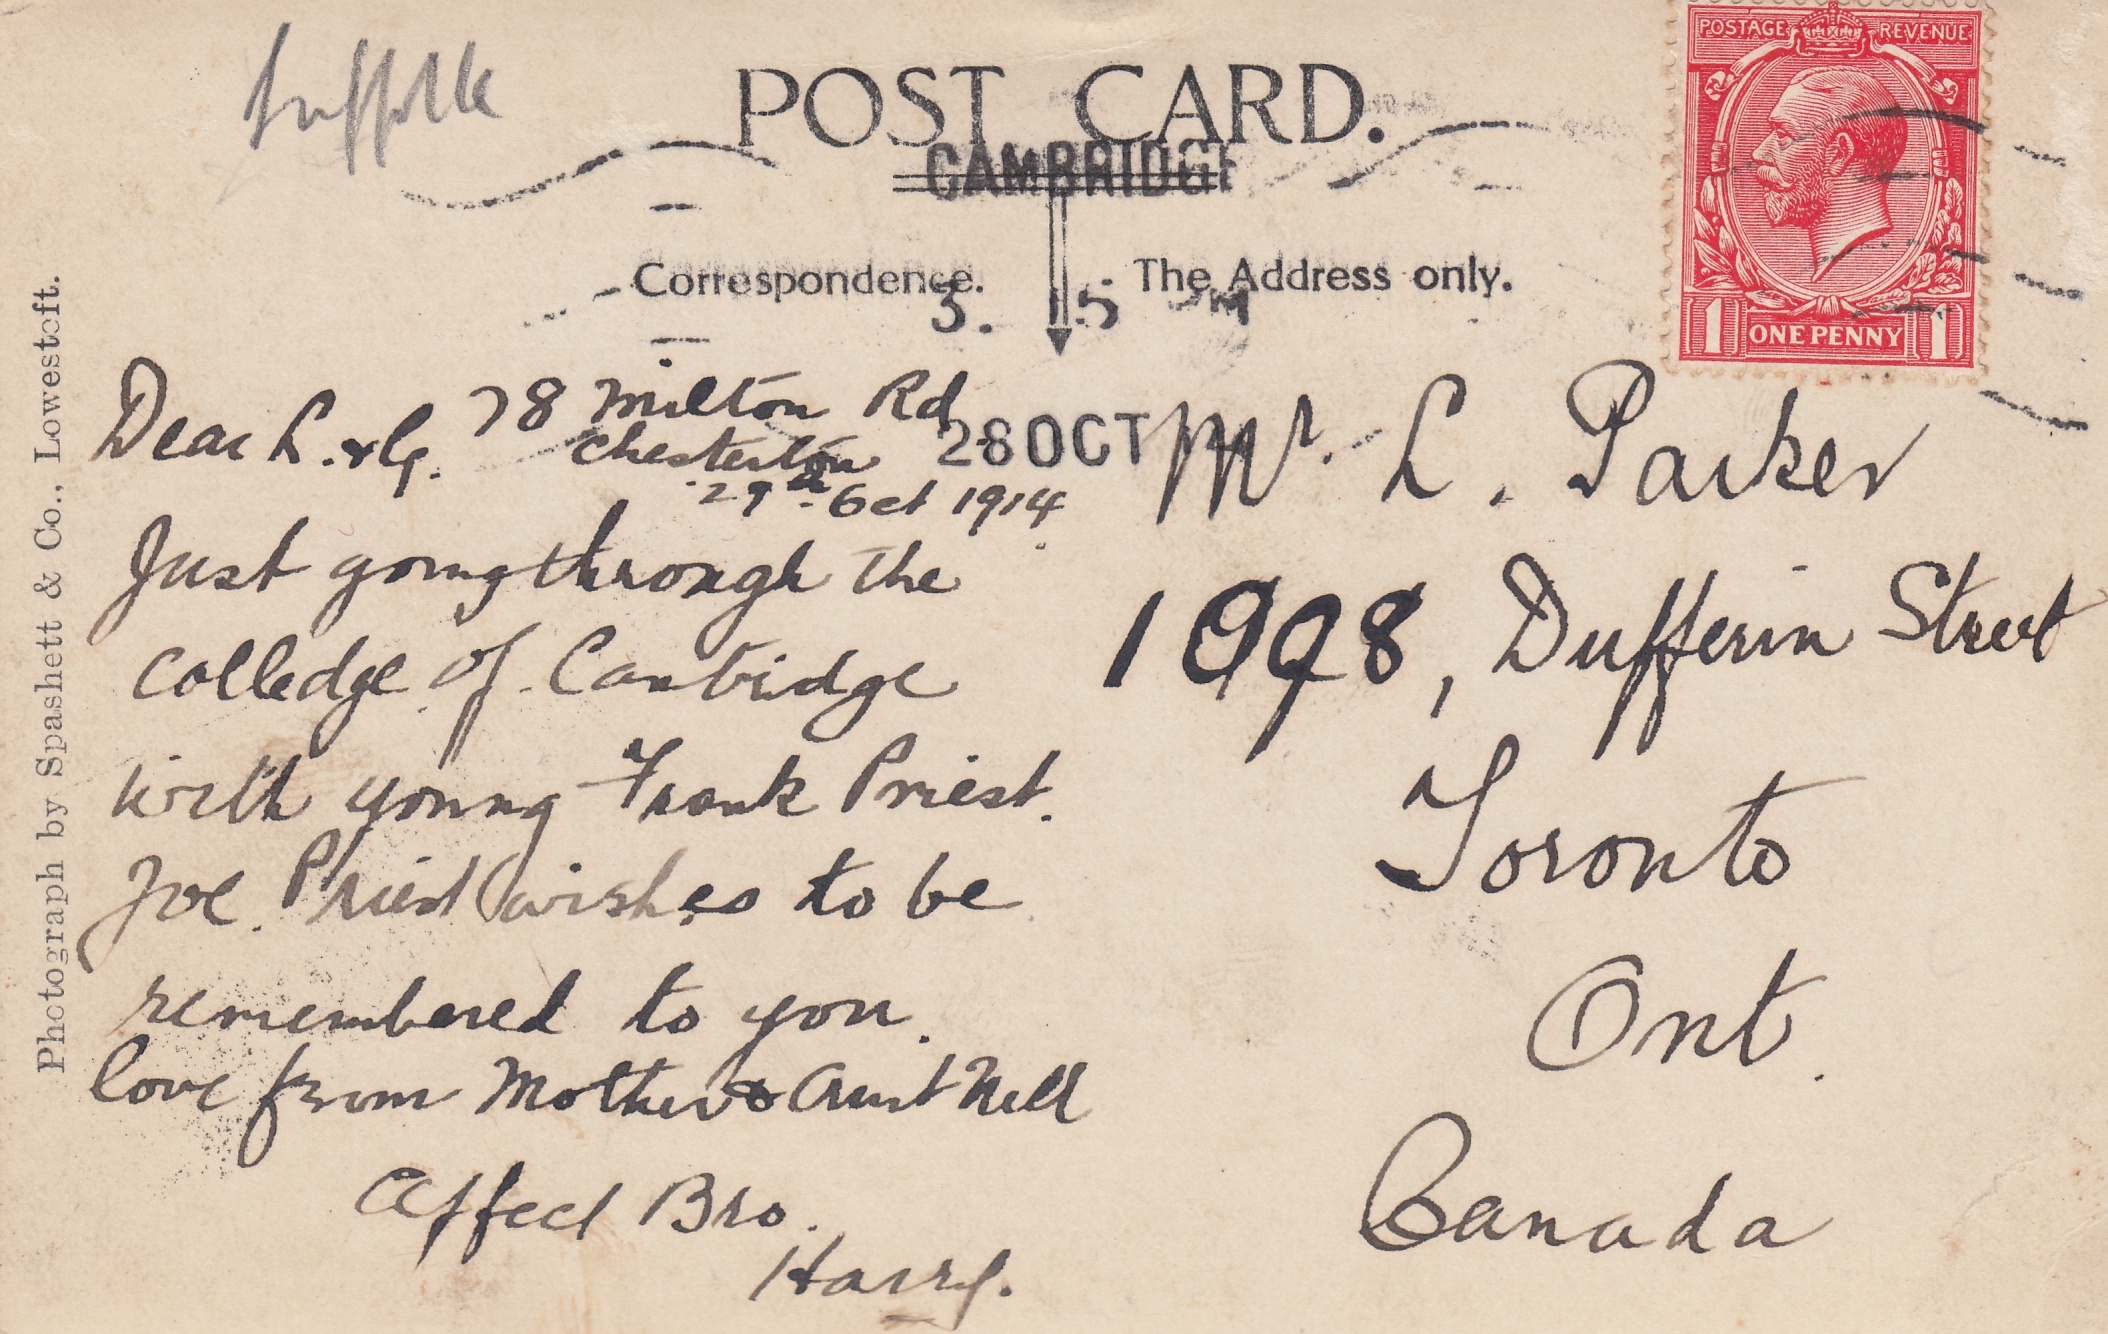 Suffolk
POST CARD.
CAMBRIDGE
Correspondence.
The Address only.
28 OCT
POSTAGE REVENUE
1 ONE PENNY 1
Photograph by Spashett & Co., Lowestoft.
78 Milton Rd
Chesterton
Oct 1914
Dear L. & G.
Just going through the
Colledge of Cambridge
with young Frank Priest.
Joe. Priest wishes to be
remembered to you.
love from Mother & Aunt Nell
Affect Bro.
Harry.
Mr. L. Parker
1998, Dufferin Street
Toronto
Ont.
Canada